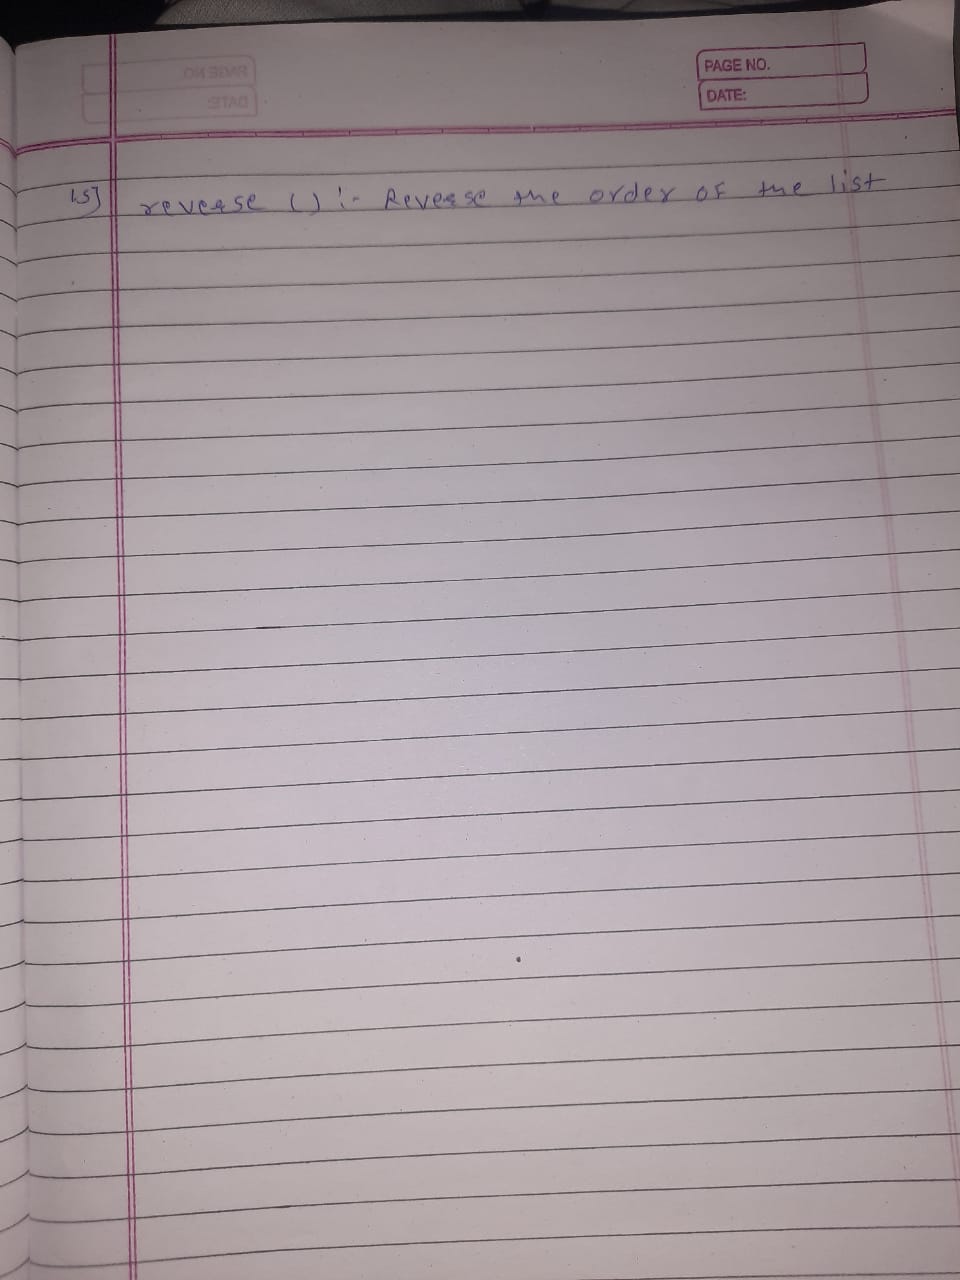 PAGE NO.
DATE:
15] reverse () :- Reverse the order of the list